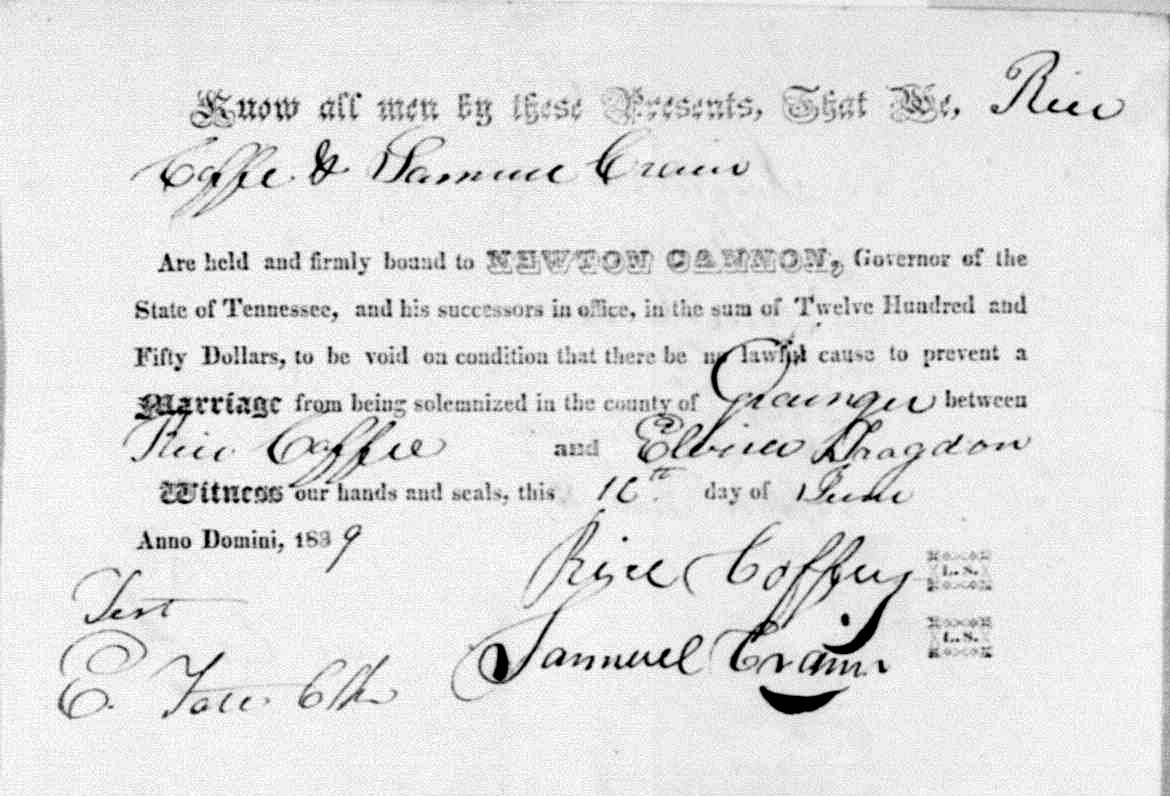 Know all men by these Presents, That We, Rice
Coffe & Samuel Crain
Are held and firmly bound to NEWTON CANNON, Governor of the
State of Tennessee, and his successors in office, in the sum of Twelve Hundred and
Fifty Dollars, to be void on condition that there be no lawful cause to prevent a
Marriage from being solemnized in the county of Grainger between
Rice Coffee and Elvira
Witness our hands and seals, this 16th day of June
Anno Domini, 1839
Rice Coffey L. S.
Test
Samuel Crain L. S.
E. Tate Clk